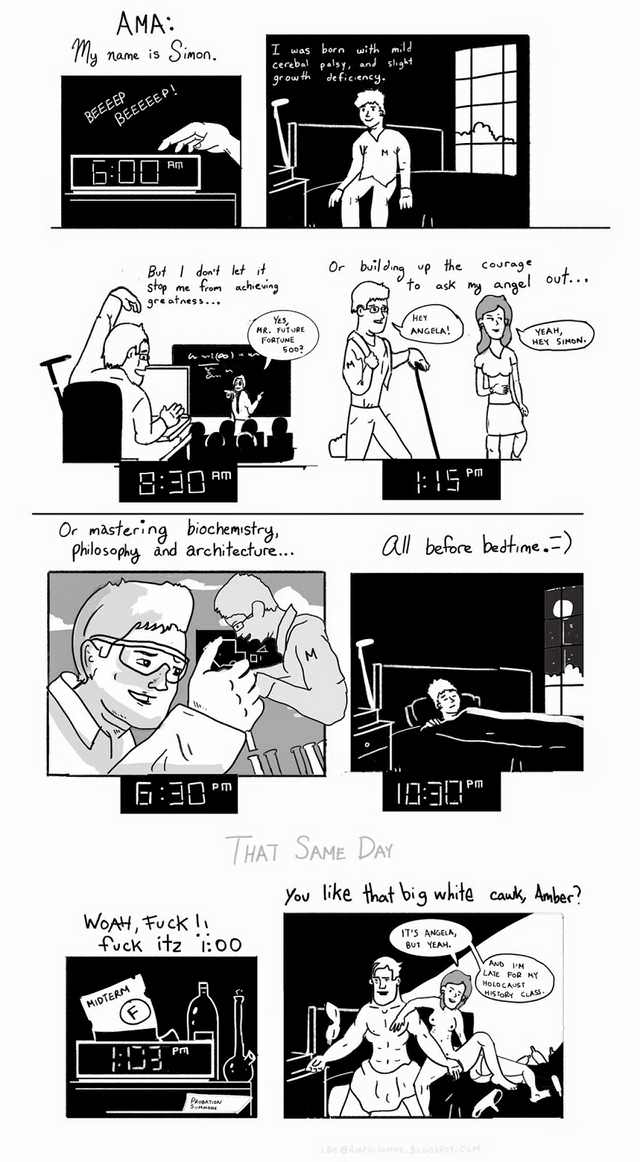 AMA:
My name is Simon.
BEEEEP
BEEEEEP!
6:00 AM
I was born with mild
cerebal palsy, and slight
growth deficiency.
M
But I don't let it
stop me from achieving
greatness...
YES,
MR. FUTURE
FORTUNE
500?
8:30 AM
Or building up the courage
to ask my angel out...
HEY
ANGELA!
YEAH,
HEY SIMON.
M
1:15 PM
Or mastering biochemistry,
philosophy and architecture...
M
6:30 PM
All before bedtime.=)
10:30 PM
THAT SAME DAY
WOAH, FUCK!!
fuck itz 1:00
MIDTERM
F
1:03 PM
PROBATION
SUMMONS
You like that big white cawk, Amber?
IT'S ANGELA,
BUT YEAH.
AND I'M
LATE FOR MY
HOLOCAUST
HISTORY CLASS.